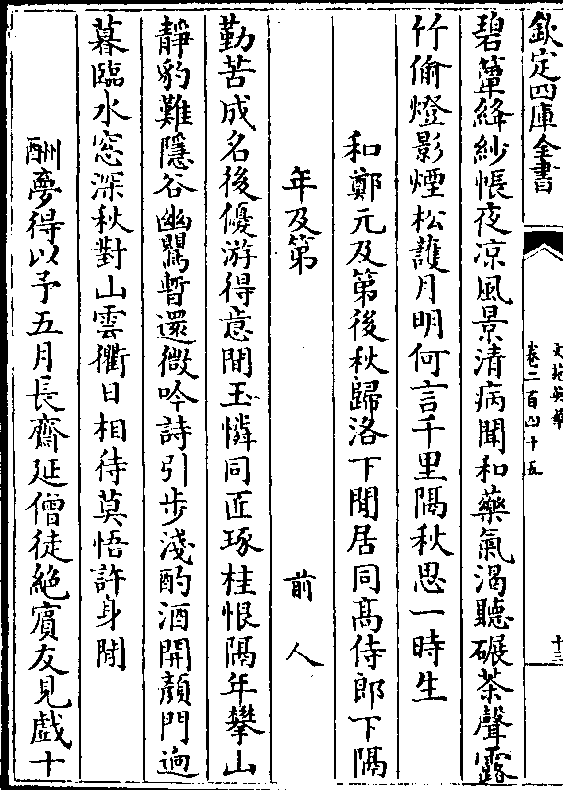 欽定四庫全書
文苑英華
卷二百四十五
十三
碧簟絳紗帳夜凉風景清病聞和藥氣渴聽碾茶聲露
竹偷燈影煙松護月明何言千里隔秋思一時生
和鄭元及第後秋歸洛下閒居同高侍郎下隔
年及第 前人
勤苦成名後優游得意間玉憐同匠琢桂恨隔年攀山
靜豹難隱谷幽鸎暫還微吟詩引步淺酌酒開顔門逈
暮臨水窓深秋對山雲衢日相待莫悟許身閒
酬夢得以予五月長齋延僧徒絶賔友見戲十